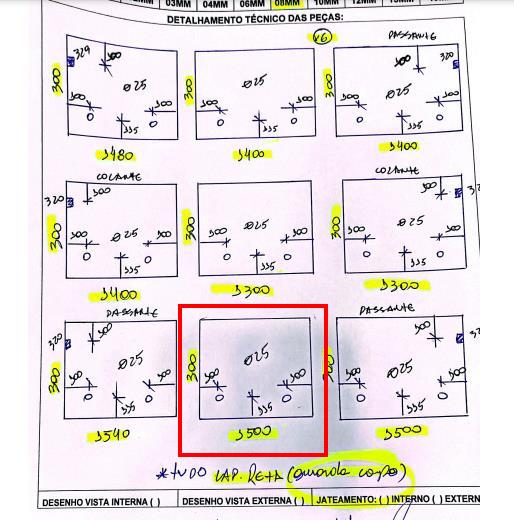 03MM 04MM 06MM 08MM 10MM 12MM
DETALHAMENTO TÉCNICO DAS PEÇAS:
V6
PASSANTE
329
300
300
Ø25
300
300
335
1480
300
Ø25
300
300
335
1400
300
300
Ø25
300
300
335
1400
COLANTE
320
300
300
Ø25
300
300
335
1400
300
Ø25
300
300
335
1300
COLANTE
300
300
Ø25
300
300
335
1300
PASSANTE
320
300
300
Ø25
300
300
335
1540
300
Ø25
300
300
335
1500
PASSANTE
320
300
300
Ø25
300
300
335
1500
*TUDO LAP. RETA (guarda copo)
DESENHO VISTA INTERNA ( ) DESENHO VISTA EXTERNA ( ) JATEAMENTO: ( ) INTERNO ( ) EXTERN